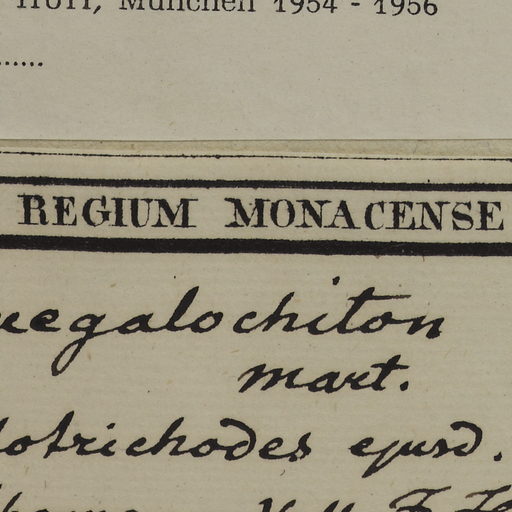 Hoff, München 1954 - 1956
......
REGIUM MONACENSE
megalochiton
mart.
lotrichodes ejusd.